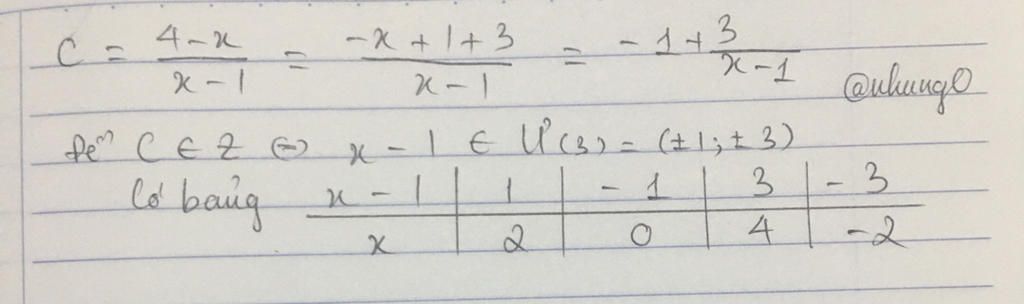 C = \frac{4-x}{x-1} = \frac{-x+1+3}{x-1} = -1 + \frac{3}{x-1}
@nhung0
Để C ∈ Z ⇔ x - 1 ∈ Ư(3) = (±1; ±3)
Có bảng x - 1 | 1 | - 1 | 3 | - 3
x | 2 | 0 | 4 | -2